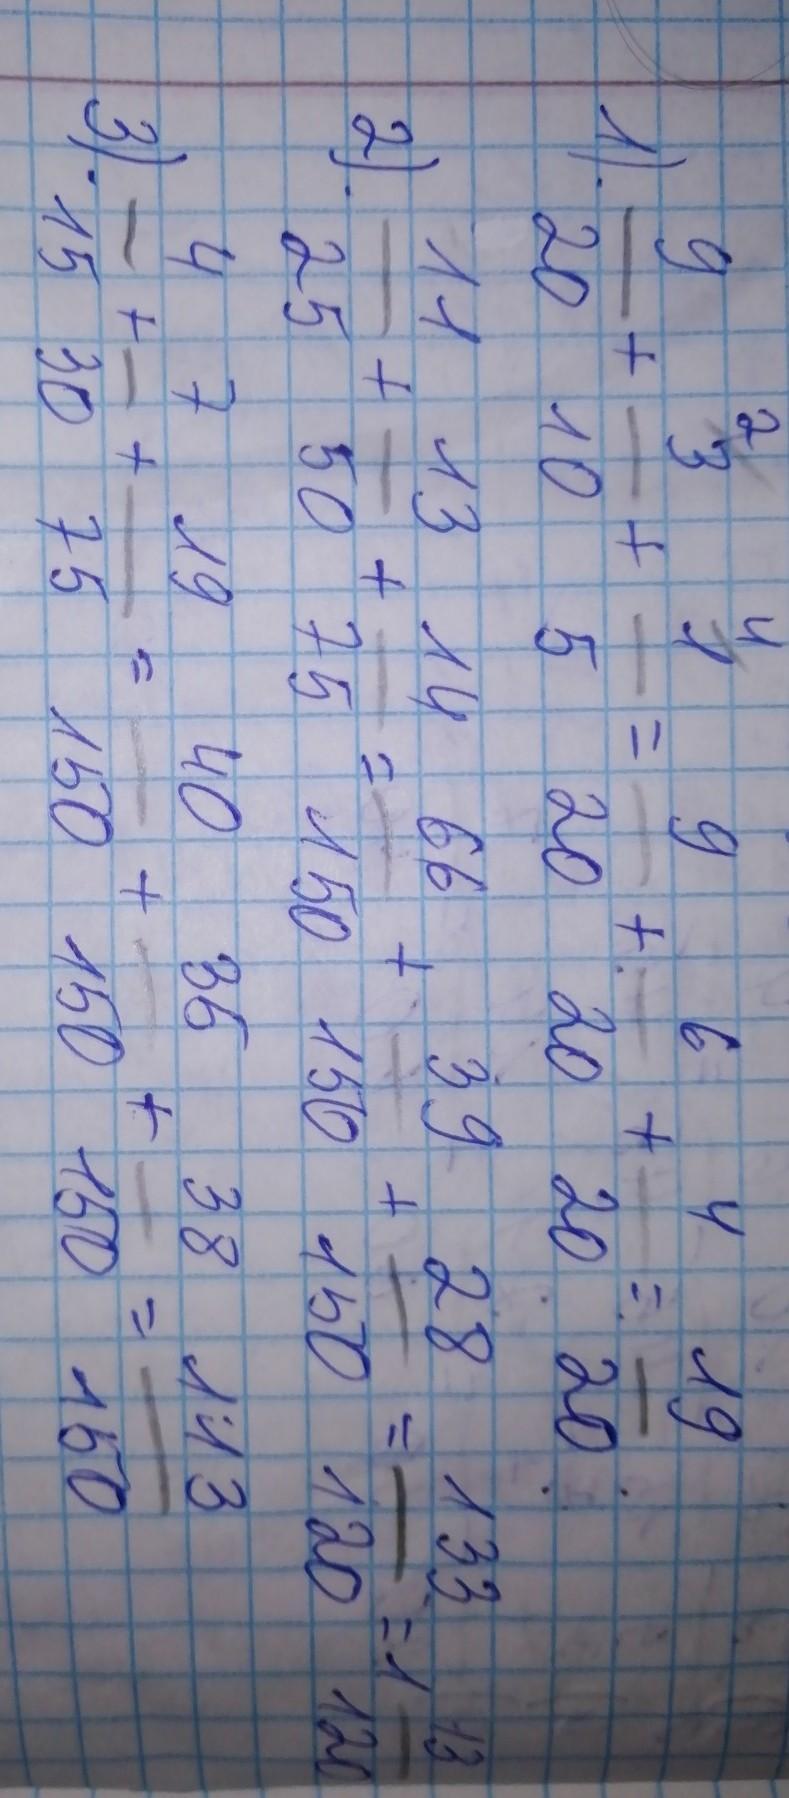 1). 9/20 + 3²/10 + 1⁴/5 = 9/20 + 6/20 + 4/20 = 19/20
2). 11/25 + 13/50 + 14/75 = 66/150 + 39/150 + 28/150 = 133/120 = 1 13/120
3). 4/15 + 7/30 + 19/75 = 40/150 + 35/150 + 38/150 = 113/150